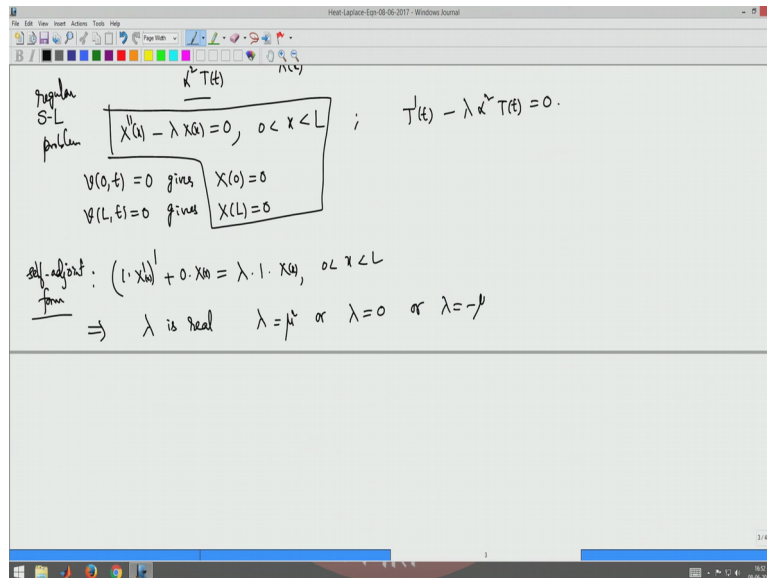 Heat-Laplace-Eqn-08-06-2017 - Windows Journal
File Edit View Insert Actions Tools Help
Page Width
B I
α² T(t)
regular
S-L
problem
X''(x) - λ X(x) = 0, 0 < x < L ; T'(t) - λ α² T(t) = 0.
v(0,t) = 0 gives X(0) = 0
v(L,t) = 0 gives X(L) = 0
self-adjoint form : (1· X'(x))' + 0· X(x) = λ· 1· X(x), 0 < x < L
⇒ λ is real λ = μ² or λ = 0 or λ = -μ
3/4
3
16:52